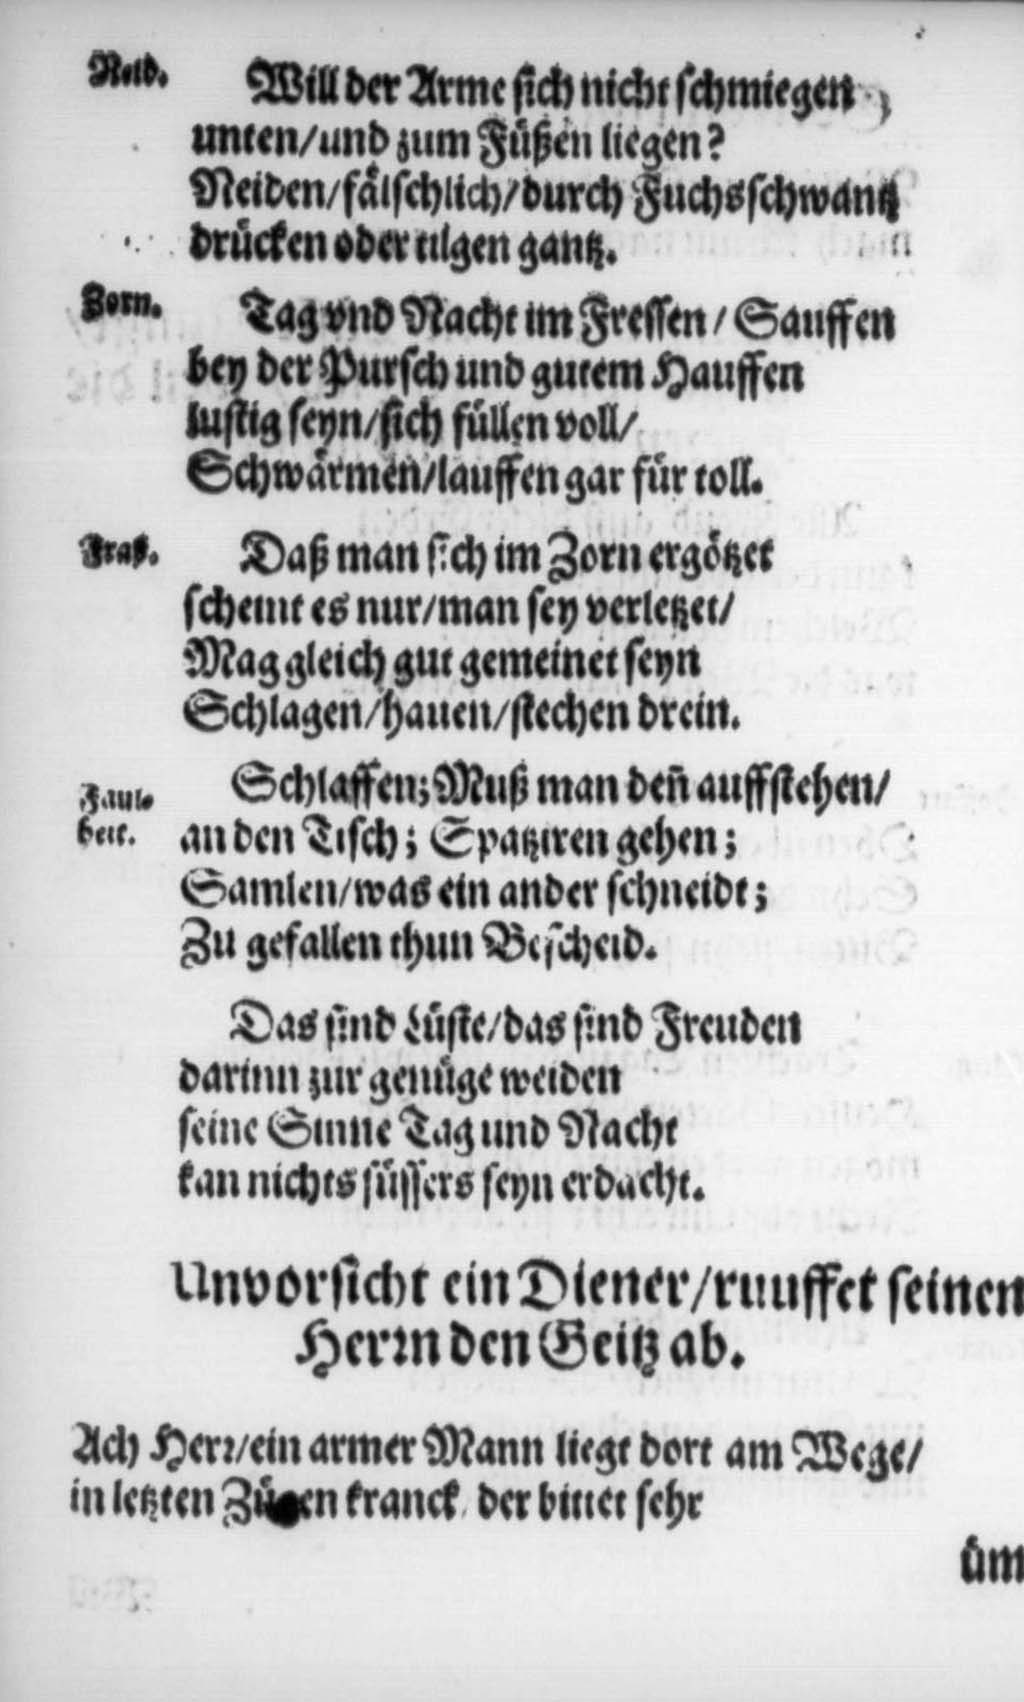 Neid.
Will der Arme sich nicht schmiegen
unten/und zum Füßen liegen?
Neiden/fälschlich/durch Fuchsschwantz
drücken oder tilgen gantz.
Zorn.
Tag vnd Nacht im Fressen / Sauffen
bey der Pursch und gutem Hauffen
lustig seyn/sich füllen voll/
Schwärmen/lauffen gar für toll.
Fraß.
Daß man sich im Zorn ergötzet
scheint es nur/man sey verletzet/
Mag gleich gut gemeinet seyn
Schlagen/hauen/stechen drein.
Faul-
heit.
Schlaffen; Muß man deñ auffstehen/
an den Tisch; Spatziren gehen;
Samlen/was ein ander schneidt;
Zu gefallen thun Bescheid.
Das sind Lüste/das sind Freuden
darinn zur genüge weiden
seine Sinne Tag und Nacht
kan nichts süssers seyn erdacht.
Unvorsicht ein Diener/ruuffet seinen
Herrn den Geitz ab.
Ach Herr/ein armer Mann liegt dort am Wege/
in letzten Zügen kranck/ der bittet sehr
üm